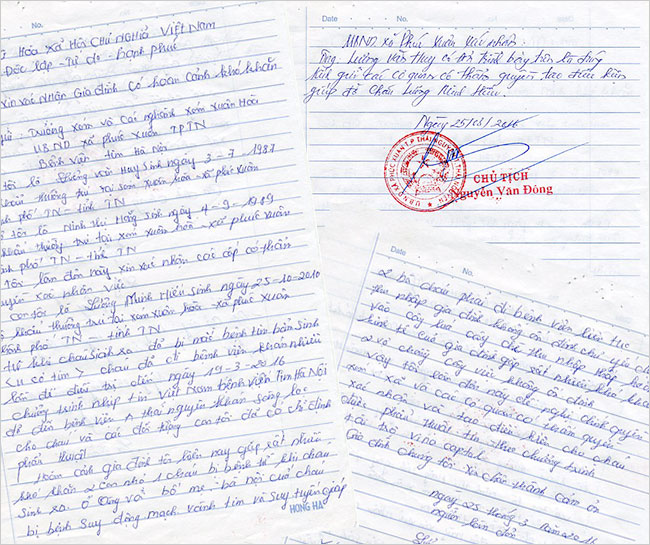 Hòa Xã Hội Chủ Nghĩa Việt Nam
Độc lập - Tự do - hạnh phúc
xin xác Nhận Gia đình Có hoàn cảnh khó khăn
Trưởng xóm và Các nghành xóm xuân Hòa
UBND xã phúc xuân TPTN
Bệnh viện tim Hà Nội
tôi là Lường văn Huy Sinh ngày 3-7-1987
khẩu thường trú tại xóm xuân hòa - xã phúc xuân
phố TN - tỉnh TN
tôi là Ninh Thị Hằng sinh ngày 4-9-1989
khẩu thường trú tại xóm xuân hòa - xã phúc xuân
phố TN - tỉnh TN
Tôi làm đơn này xin xác nhận các cấp có thẩm
quyền xác nhận việc
Con tôi là Lường Minh Hiếu sinh ngày 25-10-2010
khẩu thường trú tại xóm xuân hòa - xã phúc xuân
phố TN - tỉnh TN
từ khi cháu sinh ra đã bị mắc bệnh tim bẩm sinh
cháu đã đi bệnh viện khám nhiều
lần để điều trị đến ngày 19-3-2016
chương trình nhịp tim Việt Nam bệnh viện Tim Hà Nội
đã đến bệnh viện A thái nguyên khám sàng lọc
cho cháu và các đối tượng con tôi đã có chỉ định
phẫu thuật
Hoàn cảnh gia đình tôi hiện nay gặp rất nhiều
khó khăn 2 con nhỏ 1 cháu bị bệnh từ khi
sinh ra ở Cùng với bố mẹ bà nội của cháu
bị bệnh suy động mạch vành tim và suy tuyến giáp
HONG HA
Date No.
UBND xã Phúc Xuân xác nhận
Ông Lường Văn Huy có tên trình bày trên là đúng
kính gửi các cơ quan có thẩm quyền tạo điều kiện
giúp đỡ Cháu Lường Minh Hiếu.
Ngày 25/03/2016
CHỦ TỊCH
Nguyễn Văn Đông
Date No.
bà cháu phải đi bệnh viện liên tục
thu nhập gia đình không ổn định chủ yếu dựa
vào cây lúa cây chè thu nhập thấp
kinh tế của gia đình gặp rất nhiều khó khăn
2 vợ chồng công việc không ổn định
vậy tôi làm đơn này đề nghị chính quyền
xóm xã và các cơ quan có thẩm quyền
xác nhận và tạo điều kiện cho cháu
được phẫu thuật tim theo chương trình
tài trợ vina capital
Gia đình chúng tôi xin chân thành cảm ơn
ngày 25 tháng 3 năm 2016
người làm đơn